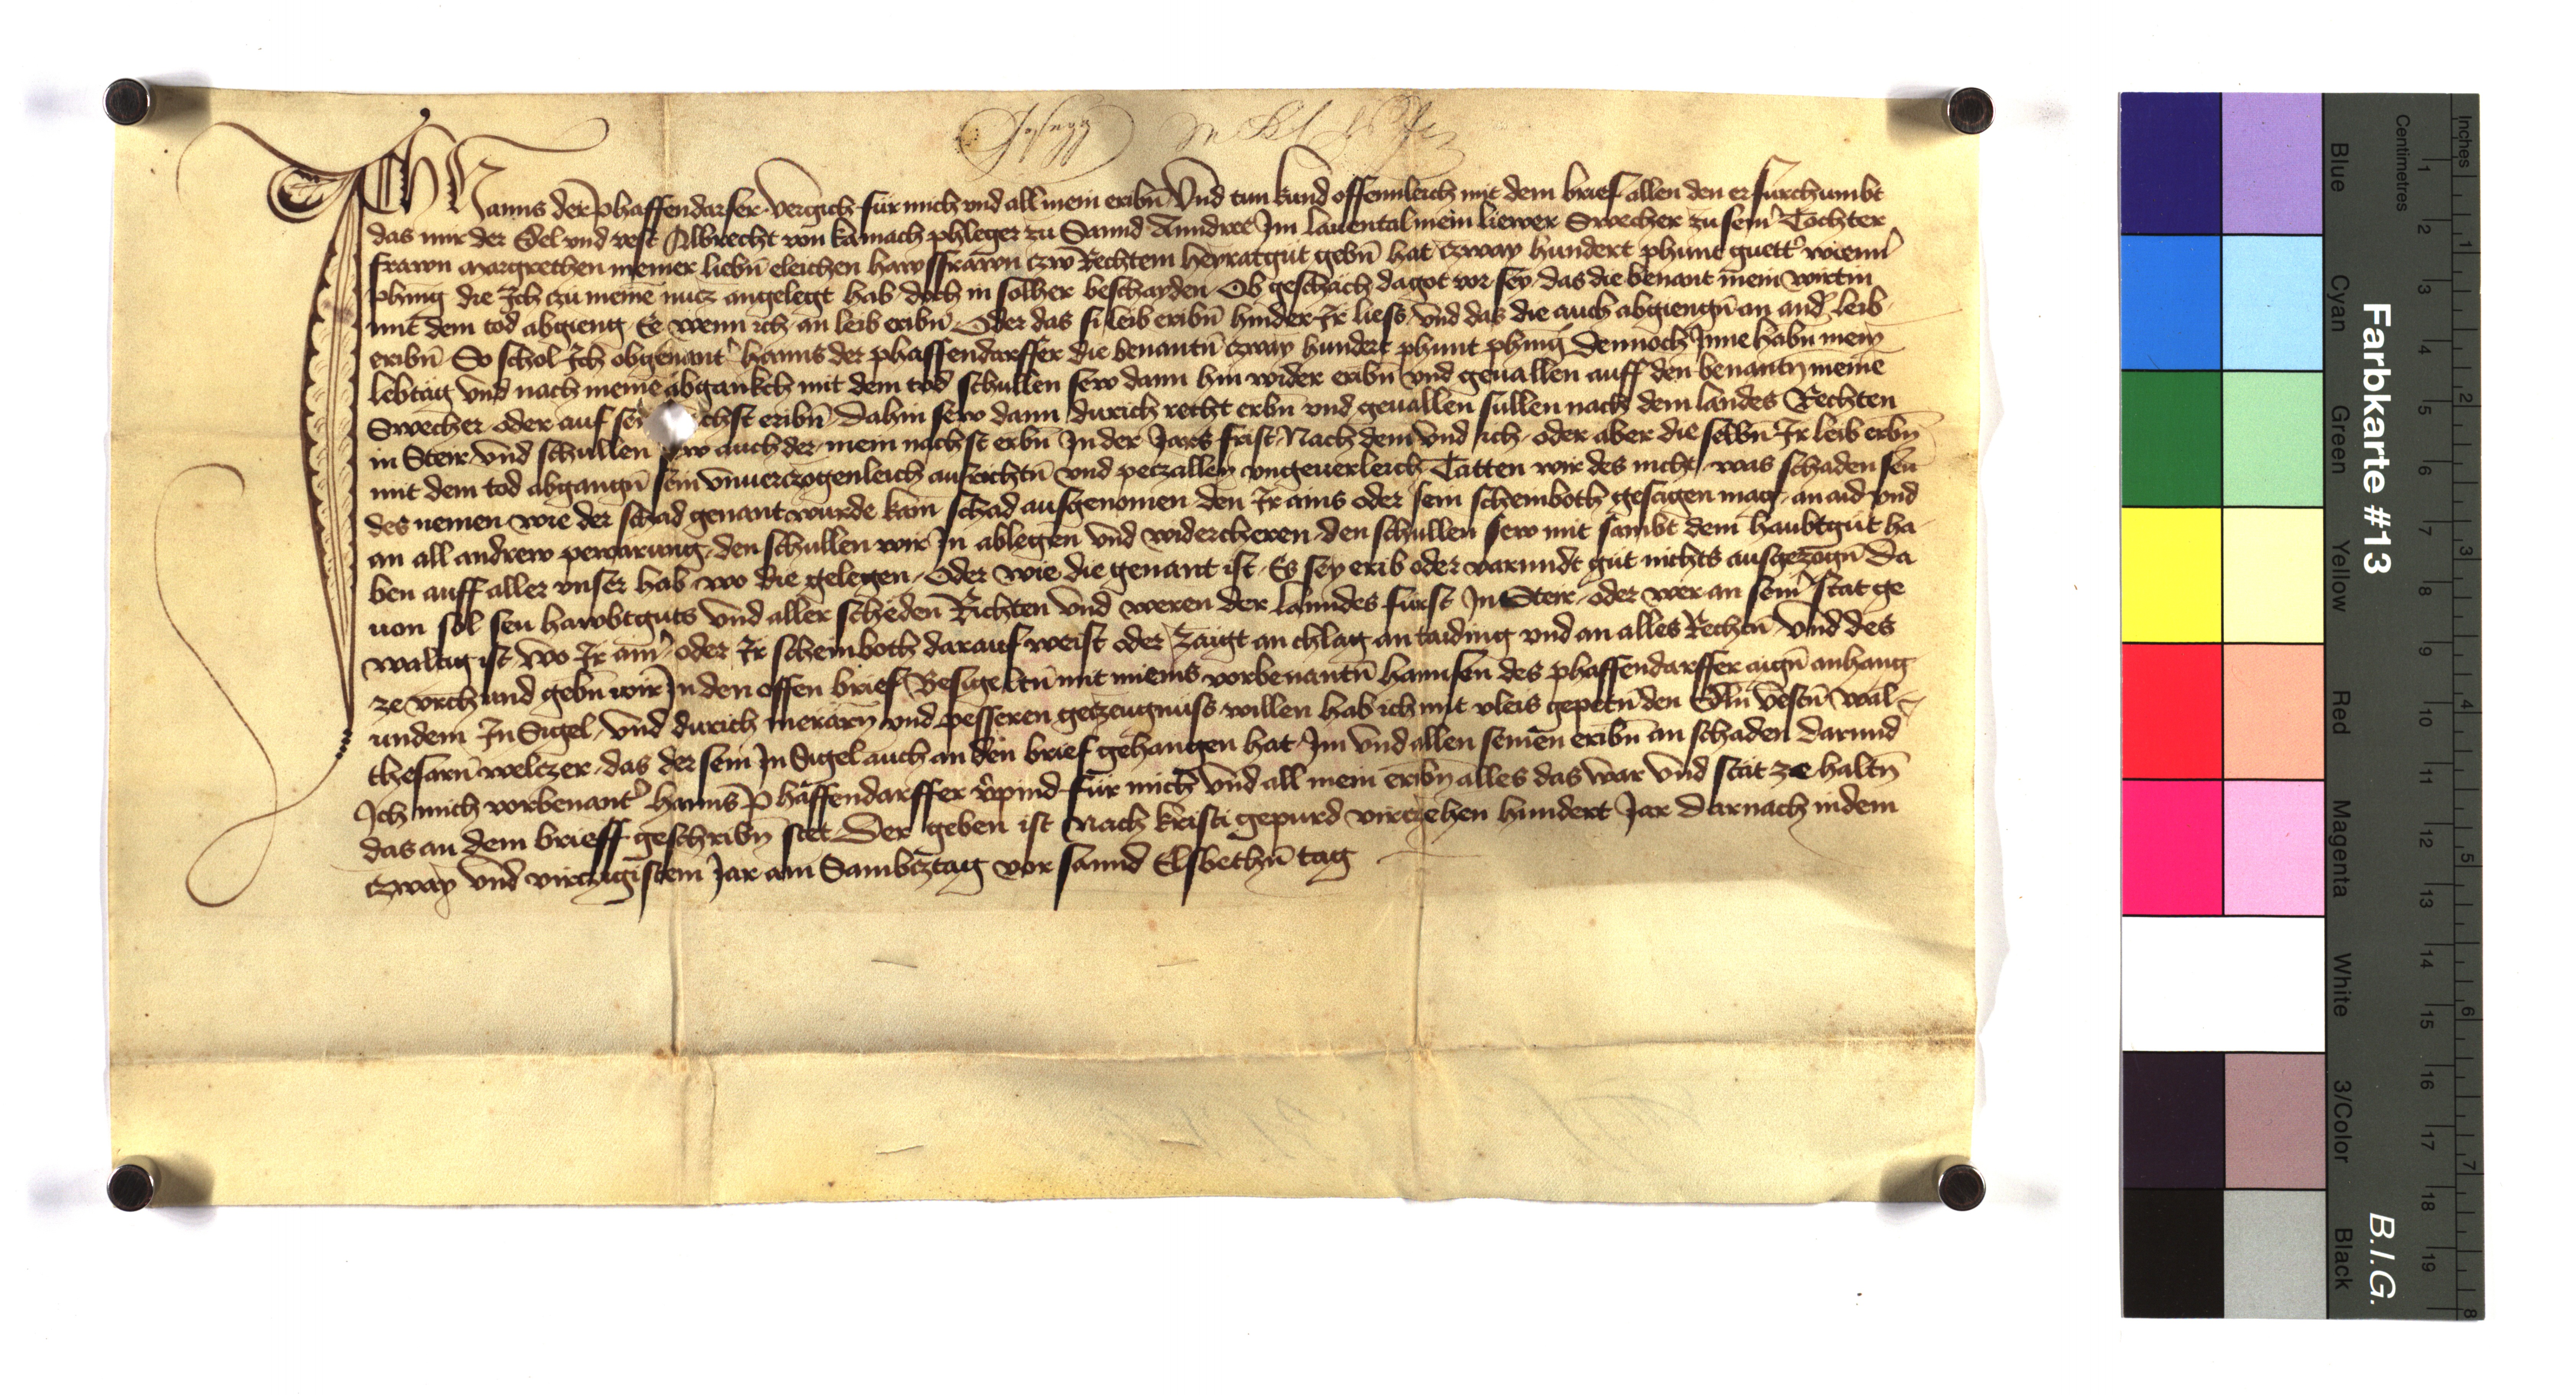 Ich Hanns der phaffendarfer vergich fur mich vnd all mein eribn̄ Vnd tun kund offennleich mit dem brief allen den er furchumbt
das mir der Edel vnd vest Albrecht von kamach phleger zu Sannd Anndree Im lauental mein liewer Swecher zu sein̕ Tochter
frawn margrethen meiner liebn̄ eleichen hawsfrawn czw Rechtem heyratgut gebn̄ hat czway hundert phunt guett̕ wienn̕
phing die Ich czu meinē nucz angelegt hab doch in solher beschayden Ob geschach dagot vor sey das die benant mein wirtin
mit dem tod abgieng Ee wenn ich an leib eribn̄ Oder das si leib eribn̄ hinder Ir liess vnd das die auch abgiengn̄ an and̕ leib
eribn̄ So schol Ich obgenant̕ hanns der phaffendarffer die benantn̄ czway hundert phunt phing Dennoch Inne habn̄ mein
lebtag vnd nach meinē abgankch mit dem tod schullen sew dann hin wider eribn̄ vnd geuallen auff den benantn̄ meinē
Swecher oder auf sei chst eribn̄ Dahin sew dann durich recht erbn̄ vnd geuallen sullen nach dem landes Rechten
in Steir vnd schullen auch der mein nachst erbn̄ In der Jars frist Nach dem vnd ich oder aber die selbn̄ Ir leib erbn̄
mit dem tod abgangn̄ sein vnuerczogenleich ausrichtn̄ vnd peczallen vngeuerleich Tatten wir des nicht was schaden seu
des nemen wie der schad genant wurde kain schad ausgenomen den Ir ains oder sein scheinboth gesagen mag an aid vnd
an all andrew pewarung den schullen wir In ablegen vnd widercheren den schullen sew mit sambt dem haubtgut ha-
ben auff aller vnser hab wo die gelegen Oder wie die genant ist Es sey erib oder varundt gut nichts ausgezogn̄ Da
uon sol seu hawbtguts vnd aller scheden Richten vnd weren der lanndes furst In Steir oder wer an sein̕ stat ge
waltig ist wo Ir ain̕ oder Ir scheinboth darauf weist oder zaigt an chlag an taiding vnd an alles Rechtn̄ Vnd des
ze vrchund gebn̄ wir In den offen brief Besigeltn̄ mit meins vorbenantn̄ hannsen des phaffendarffer aign̄ anhang
undem In Sigel Vnd durich merarn̄ vnd pesseren geczeugnuss willen hab ich mit vleis gepetn̄ den Edln̄ Vestn̄ Wal-
thesarn̄ welczer das der sein In Sigel auch an den brief gehangen hat Im vnd allen seinen eribn̄ an schaden Darund
Ich mich vorbenant̕ hanns Phaffendarffer v̕pind fur mich vnd all mein eribn̄ alles das war vnd stat ze haltn̄
das an dem brieff geschribn̄ stet Der geben ist Nach kristi gepurd virczehen hundert Jar Darnach indem
czway vnd virczigistem Jar am Sambcztag vor sannd Elsbethn̄ tag
Farbkarte #13
B.I.G.
Centimetres
Inches
Blue
Cyan
Green
Yellow
Red
Magenta
White
3/Color
Black
1 2 3 4 5 6 7 8 9 10 11 12 13 14 15 16 17 18 19
1 2 3 4 5 6 7 8